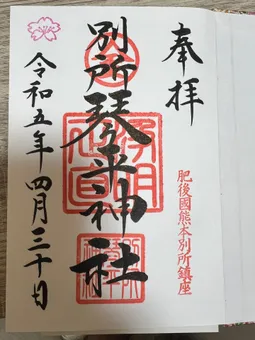 奉拝
肥後國熊本別所鎮座
別所琴平神社
令和五年四月三十日